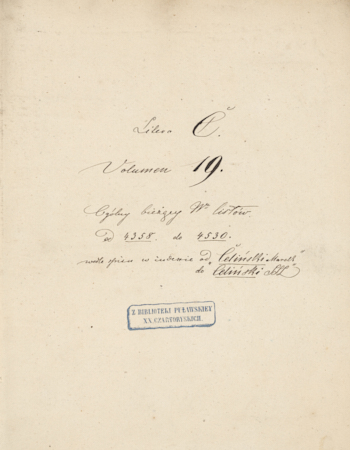 Litera C.
Volumen 19.
Ogólny bieżący Nr listów
od 4358. do 4530.
wedle spisu w indexie od "Celiński Marceli"
do "Celiński
Z BIBLIOTEKI PUŁAWSKIEY
XX. CZARTORYSKICH.